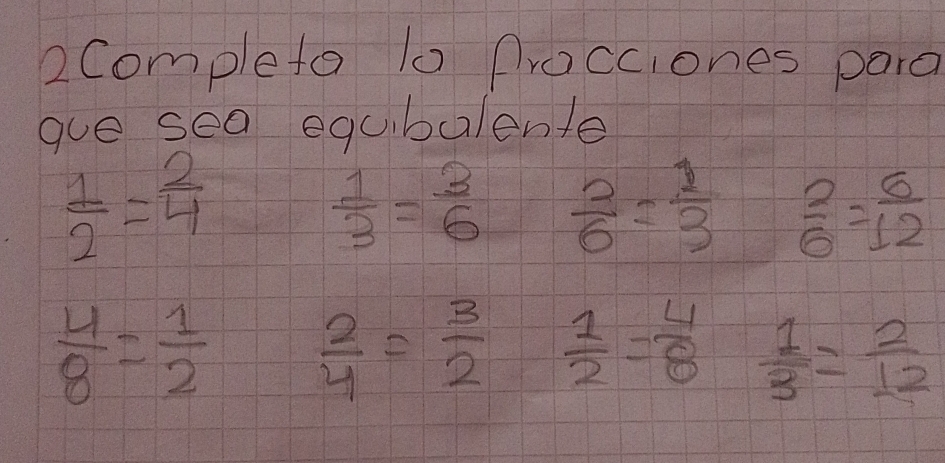 2 Completa la fracciones para
que sea equibalente
1/2 = 2/4 1/3 = 3/6 2/6 = 1/3 2/6 = 6/12
4/8 = 1/2 2/4 = 3/2 1/2 = 4/8 1/3 = 2/12